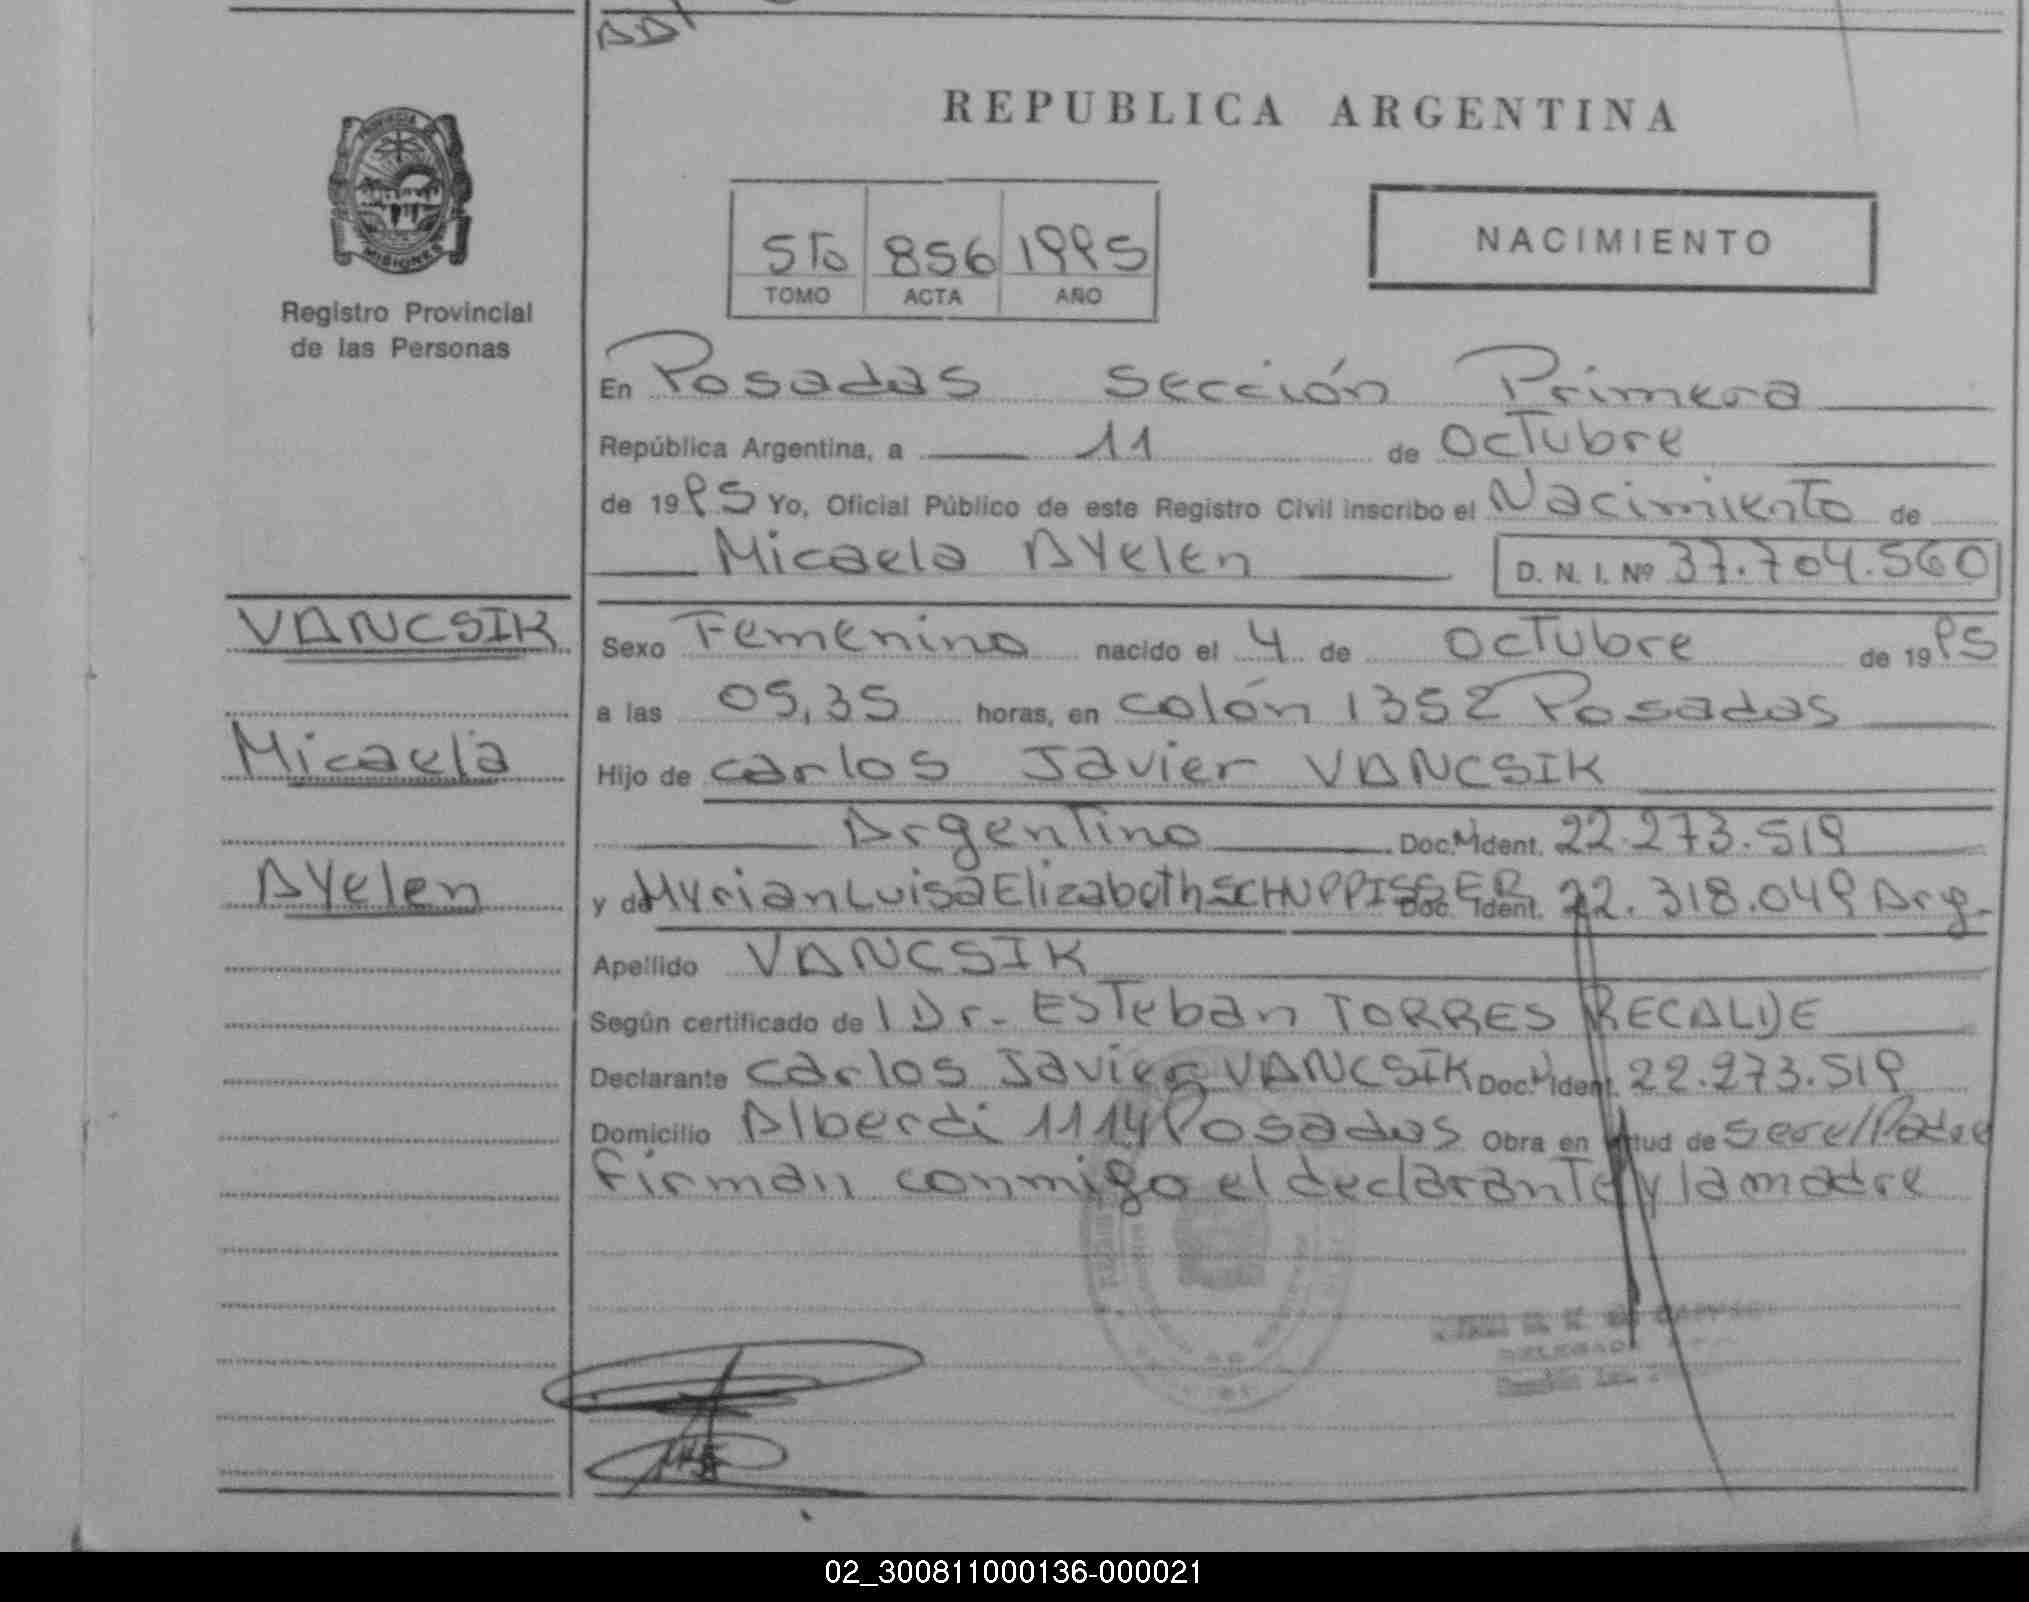 REPUBLICA ARGENTINA
PROVINCIA
MISIONES
Registro Provincial
de las Personas
5to 856 1995
TOMO ACTA AÑO
NACIMIENTO
En Posadas Sección Primera
República Argentina, a 11 de Octubre
de 1995 Yo, Oficial Público de este Registro Civil inscribo el Nacimiento de
Micaela Ayelen D. N. I. Nº 37.704.560
VANCSIK
Micaela
Ayelen
Sexo Femenino nacido el 4 de Octubre de 1995
a las 05,35 horas, en Colón 1352 Posadas
Hijo de Carlos Javier VANCSIK
Argentino Doc. Ident. 22.273.519
y de Myrian Luisa Elizabeth SCHUPPISSER Doc. Ident. 22.318.049 Arg.
Apellido VANCSIK
Según certificado de l Dr. Esteban TORRES RECALDE
Declarante Carlos Javier VANCSIK Doc. Ident. 22.273.519
Domicilio Alberdi 1114 Posadas Obra en virtud de ser el Padre
Firman conmigo el declarante y la madre
02_300811000136-000021